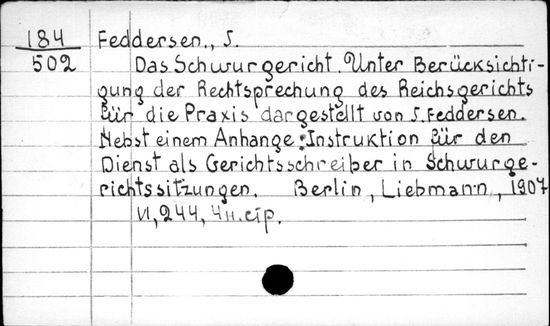 184 Feddersen, S.
502 Das Schwurgericht. Unter Berücksichti-
gung der Rechtsprechung des Reichsgerichts
für die Praxis dargestellt von S. Feddersen.
Nebst einem Anhange: Instruktion für den
Dienst als Gerichtsschreiber in Schwurge-
richtssitzungen. Berlin, Liebmann, 1907
VI, 244, 4 н. стр.